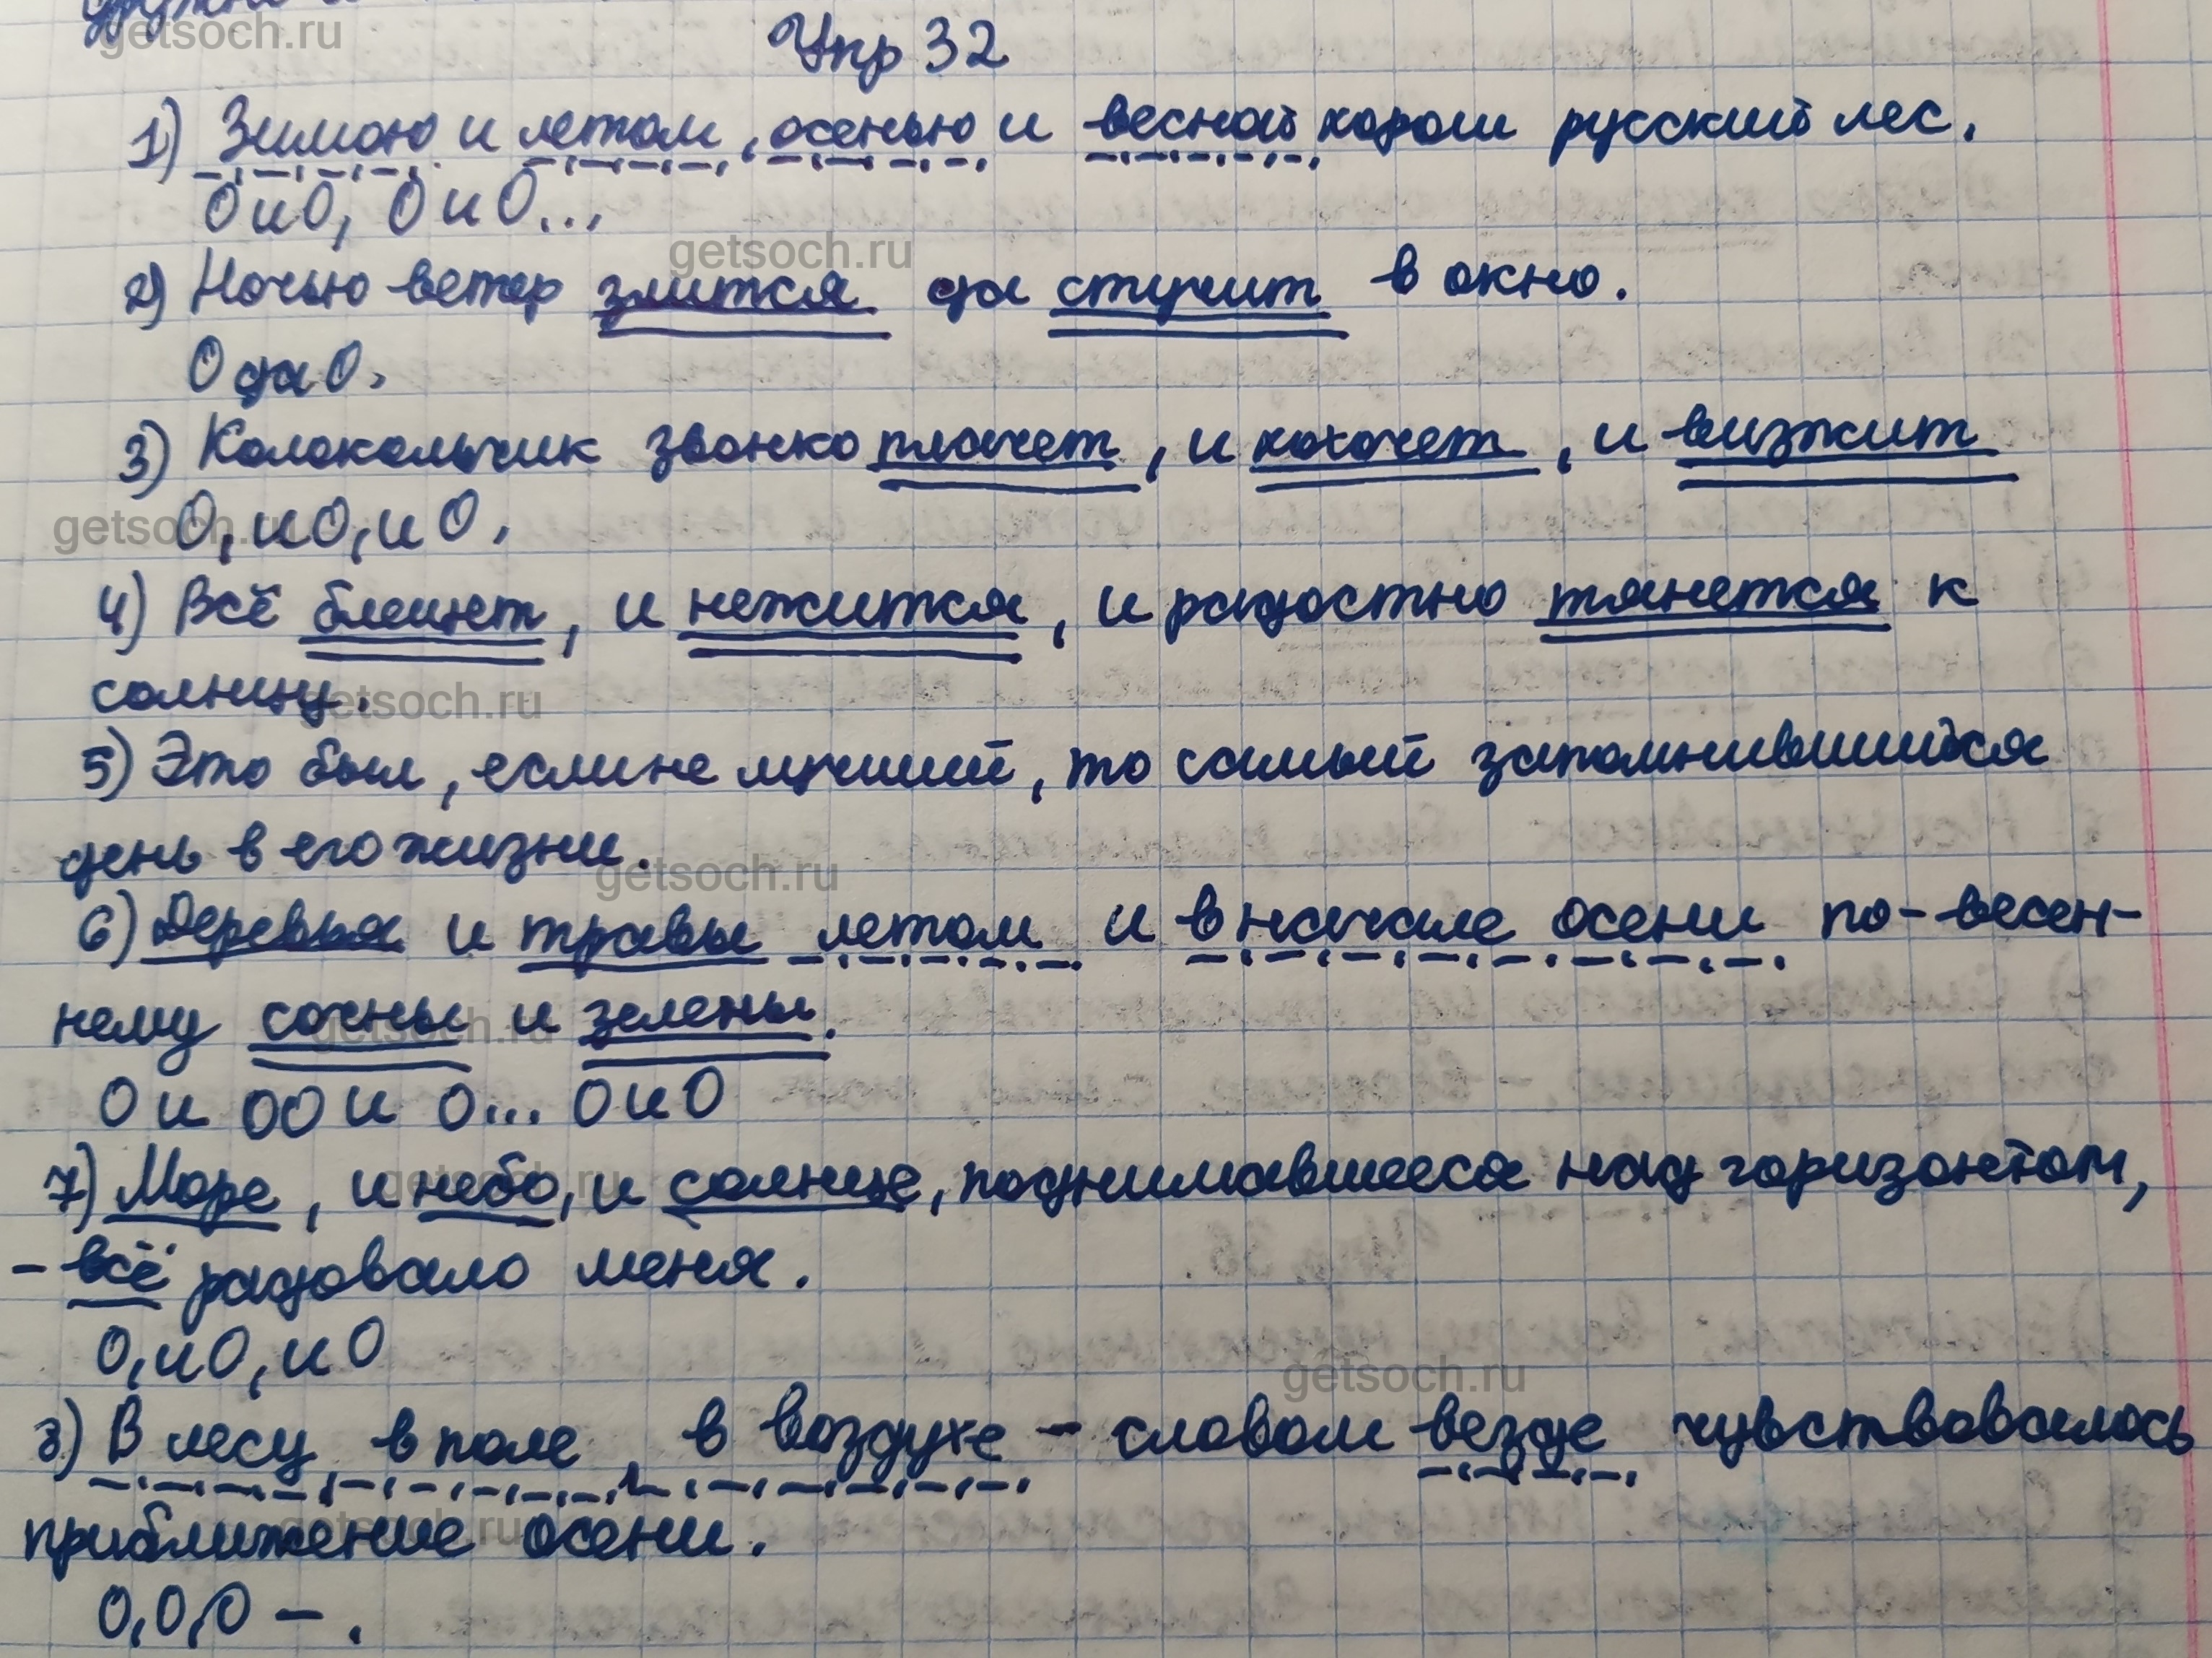 Упр 32
1) Зимою и летом, осенью и весной хорош русский лес.
О и О, О и О...,
2) Ночью ветер злится да стучит в окно.
О да О.
3) Колокольчик звонко плачет, и хохочет, и визжит
О, и О, и О.
4) Всё блещет, и нежится, и радостно тянется к
солнцу.
5) Это был, если не лучший, то самый запомнившийся
день в его жизни.
6) Деревья и травы летом и в начале осени по-весен-
нему сочны и зелены.
О и ОО и О... О и О
7) Море, и небо, и солнце, поднимавшееся над горизонтом,
- всё радовало меня.
О, и О, и О
8) В лесу, в поле, в воздухе - словом везде чувствовалось
приближение осени.
О, О, О - .
getsoch.ru
getsoch.ru
getsoch.ru
getsoch.ru
getsoch.ru
getsoch.ru
getsoch.ru
getsoch.ru
getsoch.ru